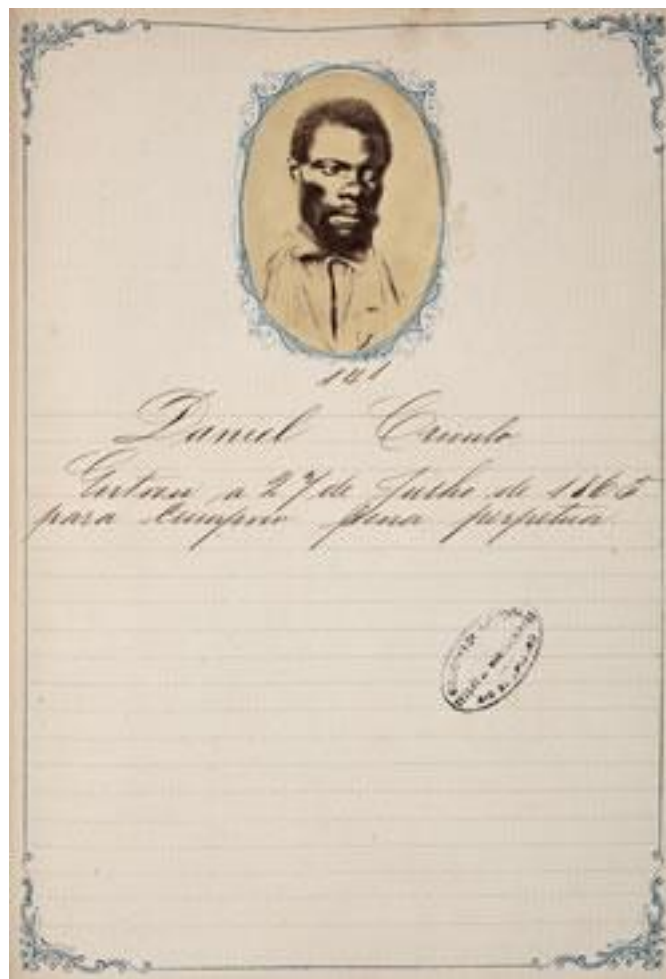 141
Daniel Crioulo
Entrou a 27 de Julho de 1865
para cumprir pena perpetua